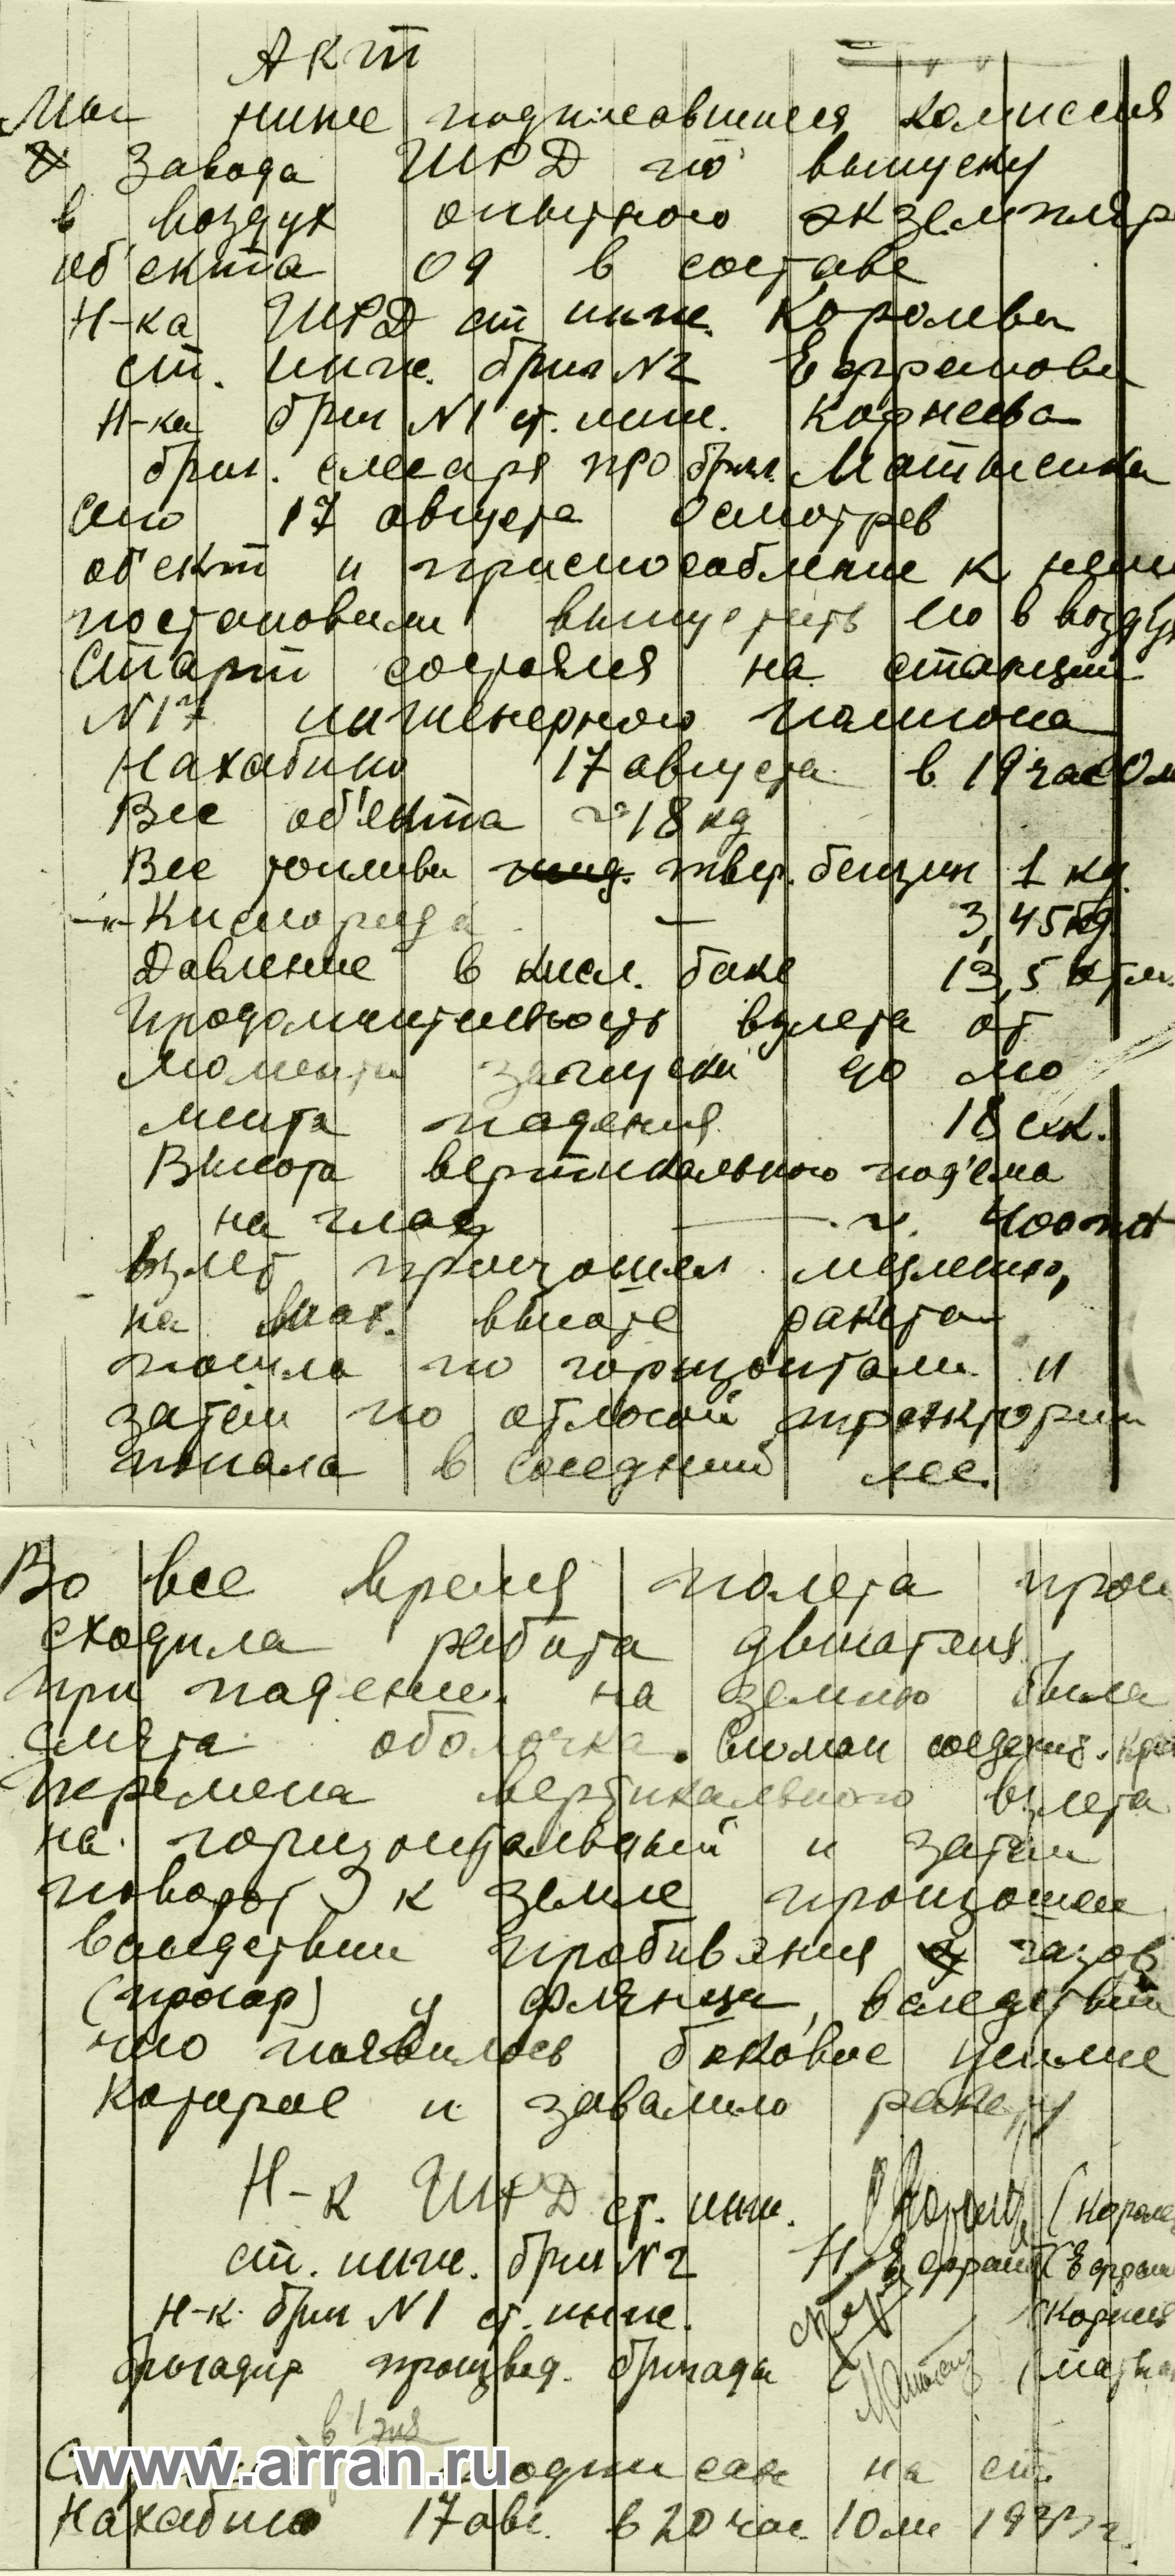 Акт
Мы ниже подписавшиеся комиссия
Завода ГИРД по выпуску
в воздух опытного экземпляр
об'екта 09 в составе
Н-ка ГИРД ст инж. Королева
ст. инж. бриг N2 Ефремова
Н-ка бриг N1 ст. инж. Корнеева
бриг. слесаря про бриг. Матысика
сего 17 августа осмотрев
об'ект и приспособление к нему
постановили выпустить его в воздух
Старт состоялся на станции
N17 инженерного полигона
Нахабино 17 августа в 19 час 0м
Вес об'екта ~ 18 кг
Вес топлива твер. бензин 1 кг.
-"- Кислорода — 3,45 кг.
Давление в кисл. баке 13,5 атм.
Продолжительность взлета от
момента запуска до мо
мента падения 18 сек.
Высота вертикального под'ема
на глаз — ~ 400 мт
Взлет произошел медленно,
на мах. высоте ракета
пошла по горизонтали и
затем по отлогой траектории
попала в соседний лес.
Во все время полета прои
сходила работа двигателя
При падении на землю была
смята оболочка. Сломан соединит. кра
Перемена вертикального взлета
на горизонтальный и затем
поворот к земле произошел
вследствии пробивания газов
(прогар) у фланца, вследствии
чего появилось боковое усилие
которое и завалило ракету
Н-к ГИРД ст. инж. (Короле
ст. инж. бриг N2 Н. Ефремов (Ефрем
Н-к бриг N1 ст. инж. (Корнев
бригадир производ. бригады (Маты
в 1 экз
www.arran.ru подписан на ст.
Нахабино 17 авг. в 20 час. 10 ми 1933 г.